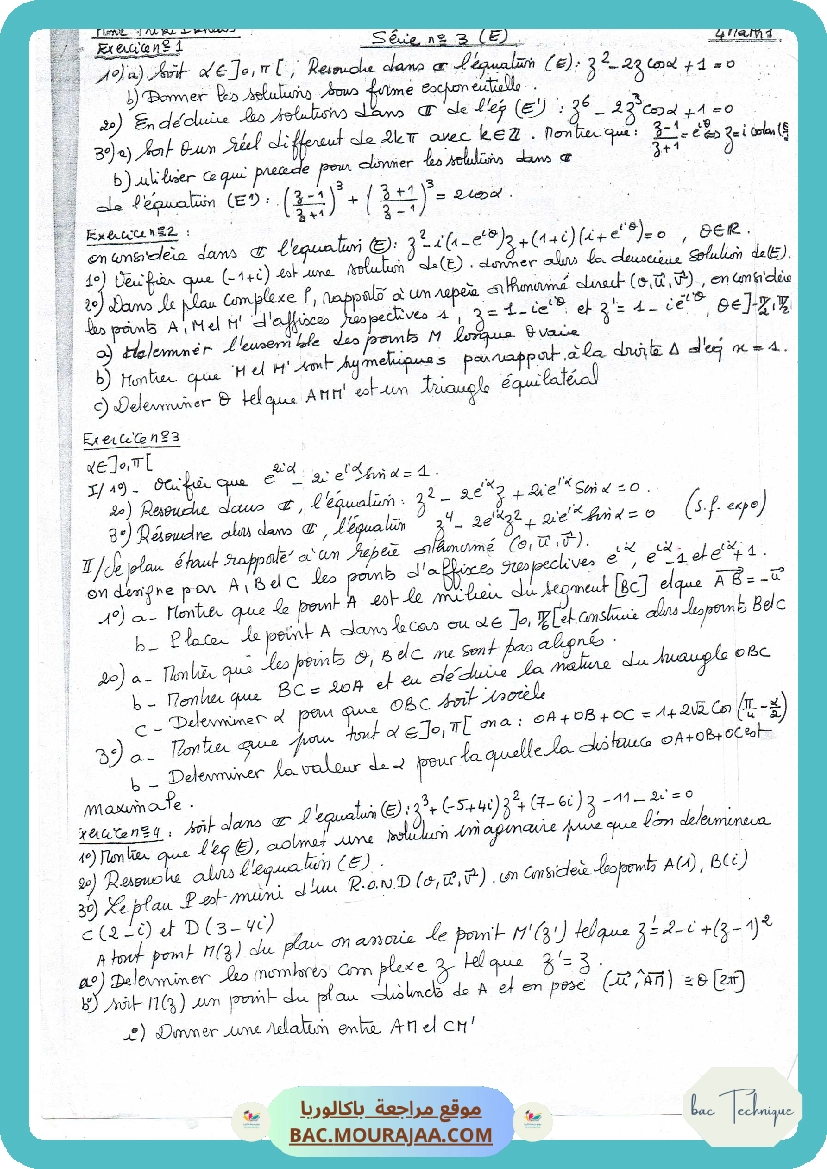 Série n° 3 (E)
4 Maths
Exercice n° 1
1°) a) Soit α∈]0,π[ ; Resoudre dans ℂ l'équation (E): z² - 2z cosα + 1 = 0
b) Donner les solutions sous forme exponentielle.
2°) En déduire les solutions dans ℂ de l'éq (E') : z⁶ - 2z³ cosα + 1 = 0
3°) a) Soit θ un réel different de 2kπ avec k∈ℤ. Montrer que: (z-1)/(z+1) = e^{iθ} ⇔ z = i cotan(θ/2
b) utiliser ce qui precede pour donner les solutions dans ℂ
de l'équation (E'): ((z-1)/(z+1))³ + ((z+1)/(z-1))³ = 2cosα.
Exercice n°2 :
on considère dans ℂ l'equation (E): z² - i(1-e^{iθ})z + (1+i)(i+e^{iθ}) = 0 , θ∈ℝ.
1°) Vérifier que (-1+i) est une solution de (E). donner alors la deuxième solution de (E).
2°) Dans le plan complexe P, rapporté à un repère orthonormé direct (o,u,v), on considère
les points A, M et M' d'affixes respectives 1, z = 1-ie^{iθ} et z' = 1-ie^{-iθ}, θ∈]-π/2,π/2[
a) determiner l'ensemble des points M lorsque θ varie
b) Montrer que M et M' sont symetriques par rapport à la droite Δ d'éq x = 1.
c) Determiner θ tel que AMM' est un triangle équilatéral
Exercice n°3
α∈]0,π[
I/ 1°) - Vérifier que e^{2iα} - 2i e^{iα} sinα = 1.
2°) Resoudre dans ℂ, l'équation: z² - 2e^{iα}z + 2ie^{iα} sinα = 0.
3°) Résoudre alors dans ℂ, l'équation z⁴ - 2e^{iα}z² + 2ie^{iα} sinα = 0 (s.f. expo)
II/ Le plan étant rapporté à un repère orthonormé (o,u,v).
on désigne par A, B et C les points d'affixes respectives e^{iα}, e^{iα}-1 et e^{iα}+1.
1°) a- Montrer que le point A est le milieu du segment [BC] et que AB = -u
b- Placer le point A dans le cas ou α∈]0,π/6[ et construire alors les points B et C
2°) a- Montrer que les points O, B et C ne sont pas alignés.
b- Montrer que BC = 2OA et en déduire la nature du triangle OBC
c- Determiner α pour que OBC soit isocèle
3°) a- Montrer que pour tout α∈]0,π[ on a: OA+OB+OC = 1+2√2 Cos(π/4 - α/2)
b- Determiner la valeur de α pour laquelle la distance OA+OB+OC est
maximale.
Exercice n°4 : soit dans ℂ l'équation (E): z³+(-5+4i)z²+(7-6i)z-11-2i=0
1°) Montrer que l'éq (E), admet une solution imaginaire pure que l'on determinera
2°) Resoudre alors l'equation (E).
3°) Le plan P est muni d'un R.O.N.D (o,u,v). on considère les points A(1), B(i)
C(2-i) et D(3-4i)
A tout point M(z) du plan on associe le point M'(z') tel que z' = 2-i+(z-1)²
a°) Determiner les nombres complexe z tel que z' = z.
b°) soit M(z) un point du plan distincts de A et on pose (u,AM) ≡ θ [2π]
i°) Donner une relation entre AM et CM'
bac Technique
موقع مراجعة باكالوريا
BAC.MOURAJAA.COM